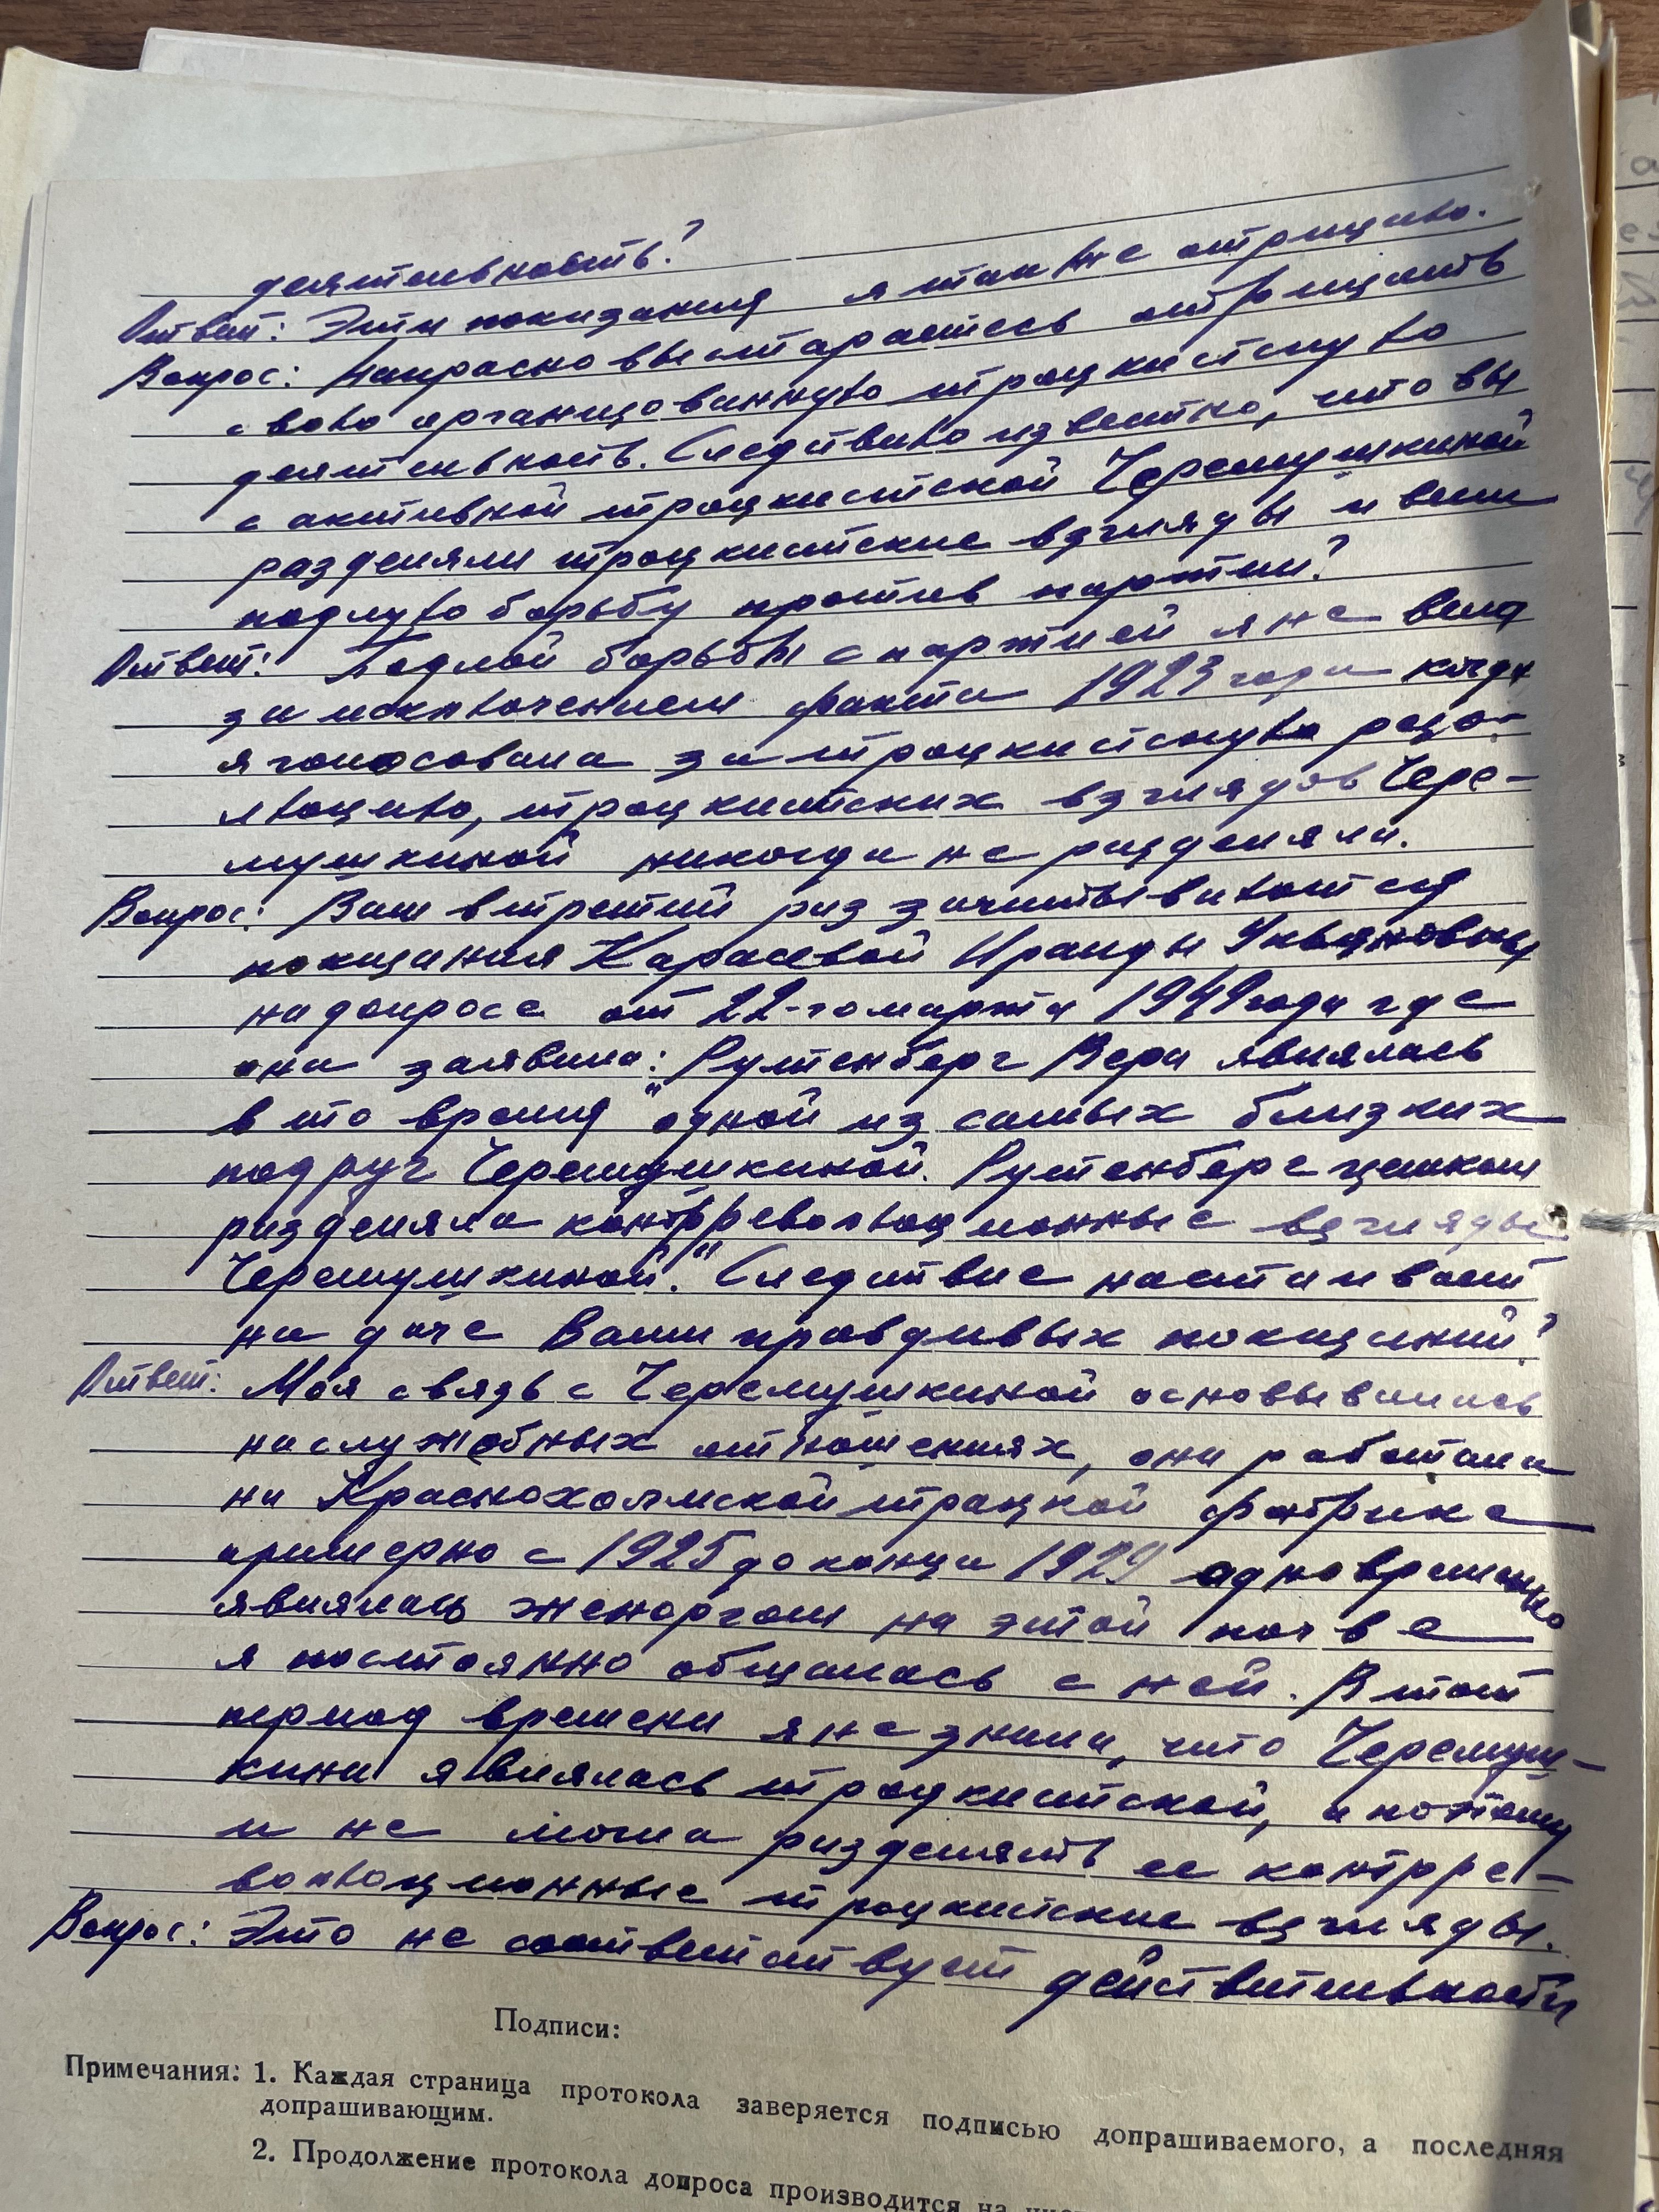 деятельность?
Ответ: Эти показания я также отрицаю.
Вопрос: Напрасно вы стараетесь отрицать
свою организованную троцкистскую
деятельность. Следствию известно, что вы
с активной троцкисткой Черемушкиной
разделяли троцкистские взгляды и вели
подлую борьбу против партии?
Ответ: Подлой борьбы с партией я не вела
за исключением факта 1923 года когда
я голосовала за троцкистскую резо-
люцию, троцкистских взглядов Чере-
мушкиной никогда не разделяла.
Вопрос: Вам в третий раз зачитываются
показания Карасевой Ираиды
на допросе от 22-го марта 1949 года где
она заявила: Рутенберг Вера являлась
в то время "одной из самых близких
подруг Черемушкиной. Рутенберг целиком
разделяла контрреволюционные взгляды
Черемушкиной." Следствие настаивает
на даче Вами правдивых показаний?
Ответ: Моя связь с Черемушкиной основывалась
на служебных отношениях, она работала
на Краснохолмской ткацкой фабрике
примерно с 1925 до конца 1929 одновременно
являлась женоргом на этой почве
я постоянно общалась с ней. В тот
период времени я не знала, что Черемуш-
кина являлась троцкисткой, а потому
и не могла разделять ее контрре-
волюционные троцкистские взгляды.
Вопрос: Это не соответствует действительности
Подписи:
Примечания: 1. Каждая страница протокола заверяется подписью допрашиваемого, а последняя
допрашивающим.
2. Продолжение протокола допроса производится на